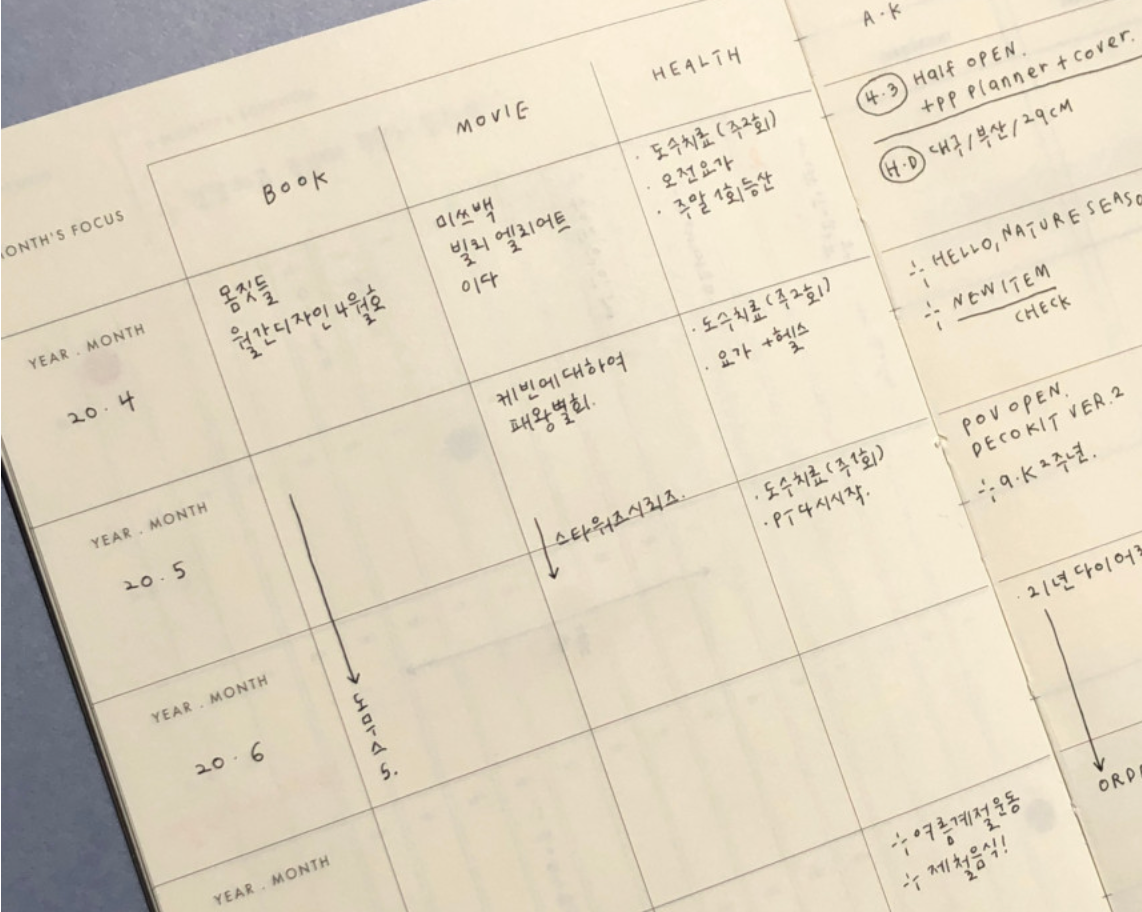 MONTH'S FOCUS
BOOK
MOVIE
HEALTH
YEAR . MONTH
20 . 4
몸짓들
월간디자인 4월호
미쓰백
빌리 엘리어트
이다
· 도수치료 (주2회)
· 오전요가
· 주말 1회 등산
YEAR . MONTH
20 . 5
케빈에 대하여
패왕별희.
· 도수치료 (주2회)
· 요가 + 헬스
YEAR . MONTH
20 . 6
도무스
5.
스타워즈시리즈.
· 도수치료 (주1회)
· PT 다시시작.
YEAR . MONTH
여름계절운동
제철음식!
A·K
4.3 Half OPEN.
+PP planner + cover.
H.D 대구/부산/29CM
HELLO, NATURE SEASO
NEW ITEM
CHECK
POV OPEN.
DECO KIT VER.2
a.K 2주년.
· 21년 다이어
ORD